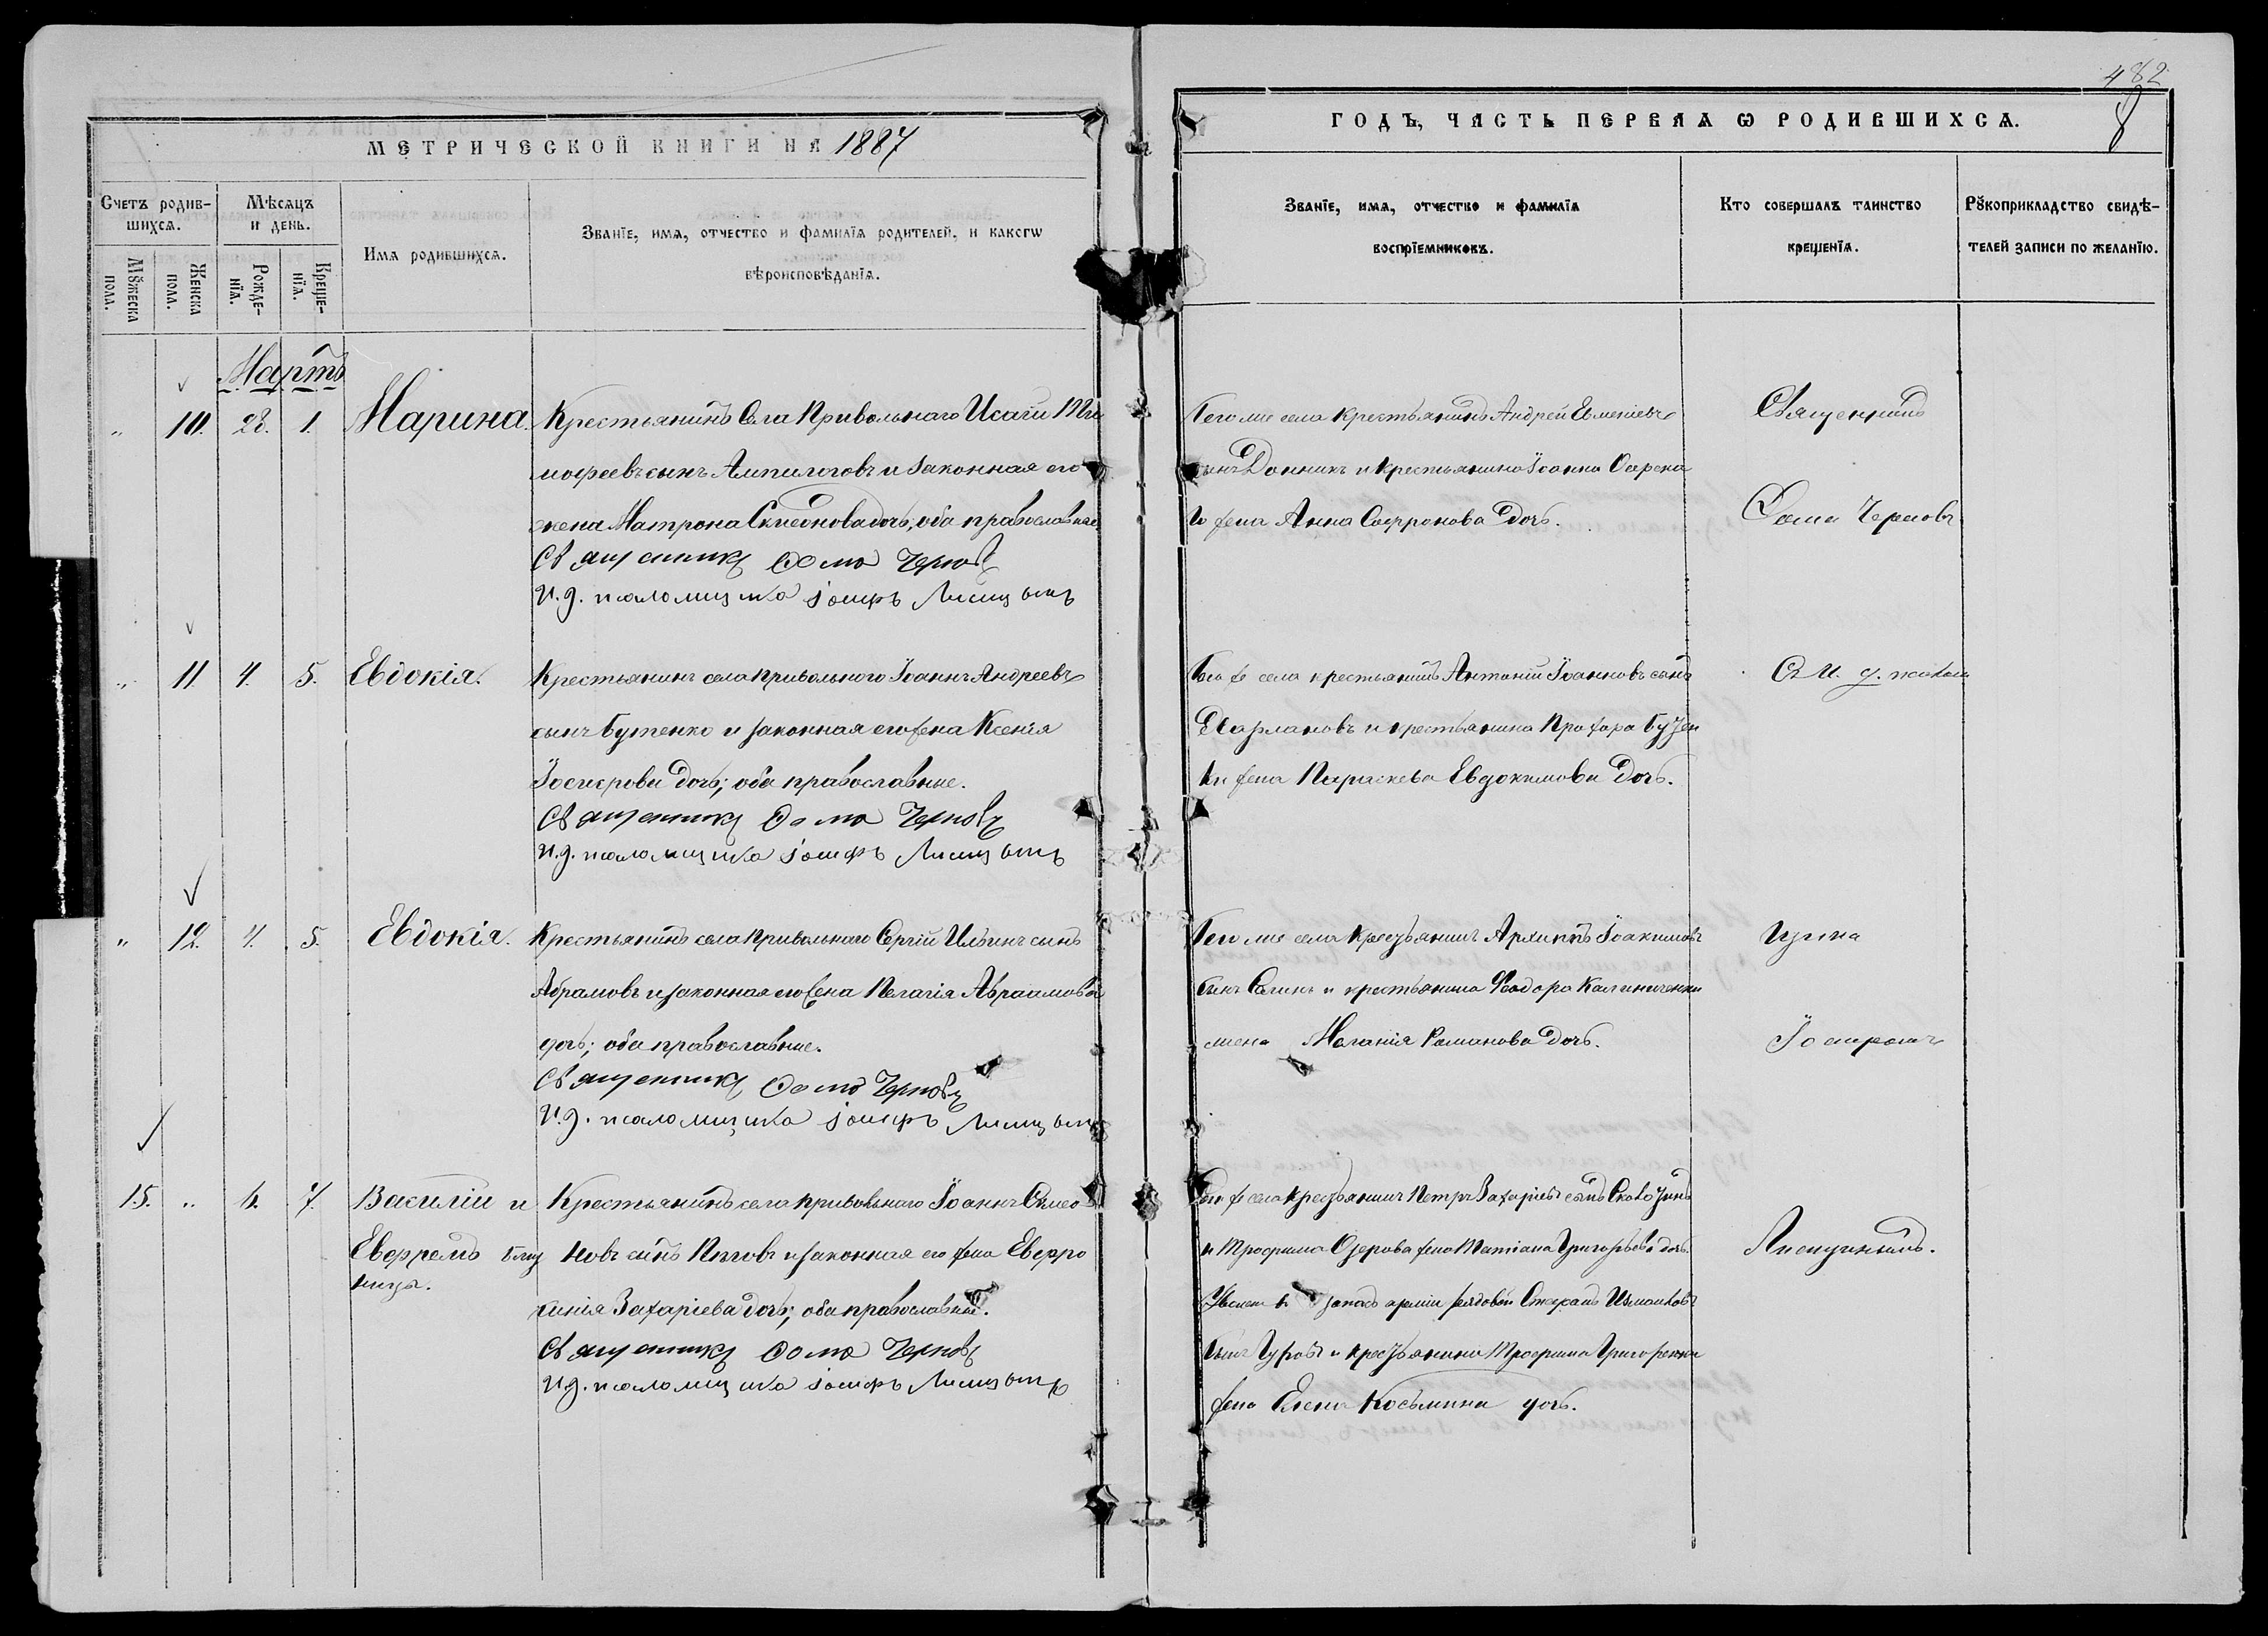 482
8
МЕТРИЧЕСКОЙ КНИГИ НА 1887
ГОДЪ, ЧАСТЬ ПЕРВАѦ Ѡ РОДИВШИХСѦ.
Счетъ родив-
шихсѧ.
Мѣсѧцъ
и день.
Мꙋжеска
пола.
Женска
пола.
Рожде-
нїѧ.
Креще-
нїѧ.
Имѧ родившихсѧ.
Званїе, имѧ, отчество и фамилїѧ родителей, и какогѡ
вѣроисповѣданїѧ.
Званїе, имѧ, отчество и фамилїѧ
воспрїемниковъ.
Кто совершалъ таинство
крещенїѧ.
Рꙋкоприкладство свидѣ-
телей записи по желанїю.
Мартъ
" 10. 28. 1. Марина.
Крестьянинъ Села Привольнаго Исаги Ти
мофеевъ сынъ Ампилоговъ и законная его
жена Матрона Симеонова дочь, оба православные
Священникъ Фома Черновъ
И.д. псаломщика Іосифъ Лисицынъ
Того же села крестьянинъ Андрей Евменіевъ
сынъ Донникъ и крестьянина Іоанна
жена Анна Софронова дочь.
Священникъ
Фома Черновъ
" 11. 4. 5. Евдокія.
Крестьянинъ села Привольного Іоаннъ Андреевъ
сынъ Бутенко и законная его жена Ксенія
Іосифова дочь; оба православные.
Священникъ Фома Черновъ
И.д. псаломщика Іосифъ Лисицынъ
Того же села крестьянинъ Антоній Іоанновъ сынъ
Харламовъ и крестьянина Прохора
жена Параскева Евдокимова дочь.
Съ И. д. псалом
" 12. 4. 5. Евдокія.
Крестьянинъ села Привольнаго Сергій Ильинъ сынъ
Абрамовъ и законная его жена Пелагія Авраамова
дочь; оба православные.
Священникъ Фома Черновъ
И.д. псаломщика Іосифъ Лисицынъ
Того же села Крестьянинъ Архиппъ Іоакимовъ
сынъ и крестьянина Феодора Калиниченки
жена Маланія Романова дочь.
щика
Іосифомъ
15. " 6. 7. Василій и
Евфремъ близ
нецы.
Крестьянинъ села Привольнаго Іоаннъ Симео
новъ сынъ Пѣговъ и законная его жена Евфро
синія Захаріева дочь; оба православные.
Священникъ Фома Черновъ
И.д. псаломщика Іосифъ Лисицынъ
Того же села Крестьянинъ Петръ Захаріевъ сынъ
и Трофима Озерова жена Татіана Григорьева дочь.
въ запасъ арміи рядовой Стефанъ
сынъ Гуровъ и крестьянина Трофима
жена Елена Косьмина дочь.
Лисицинымъ.